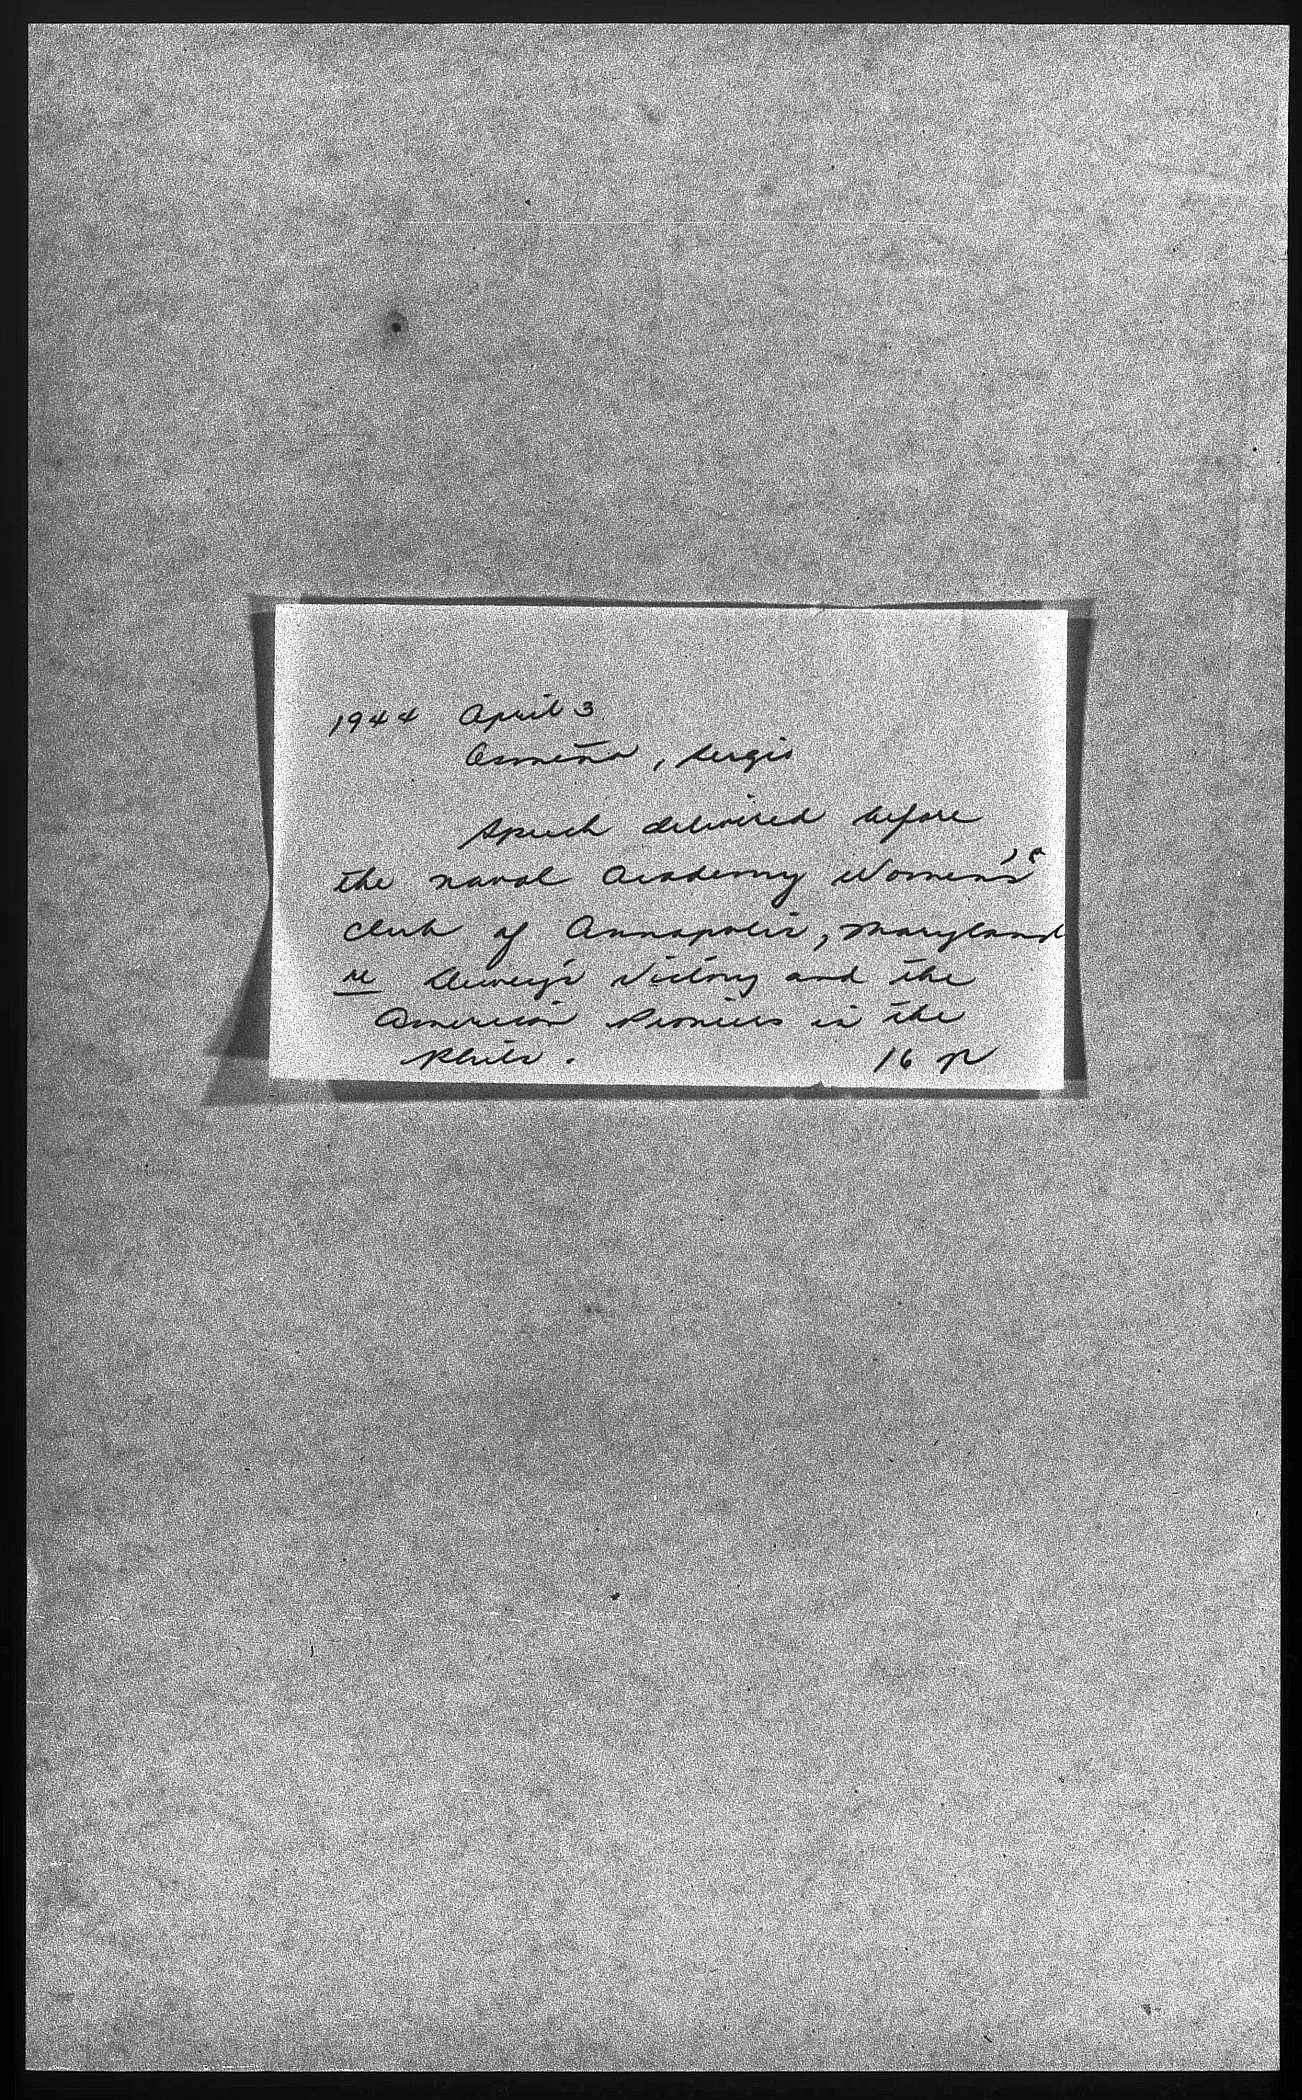 1944 April 3
Osmeña, Sergio
Speech delivered before
the naval Academy Women's
club of Annapolis, Maryland
re Dewey's Victory and the
American Pioneers in the
Phils. 16 p